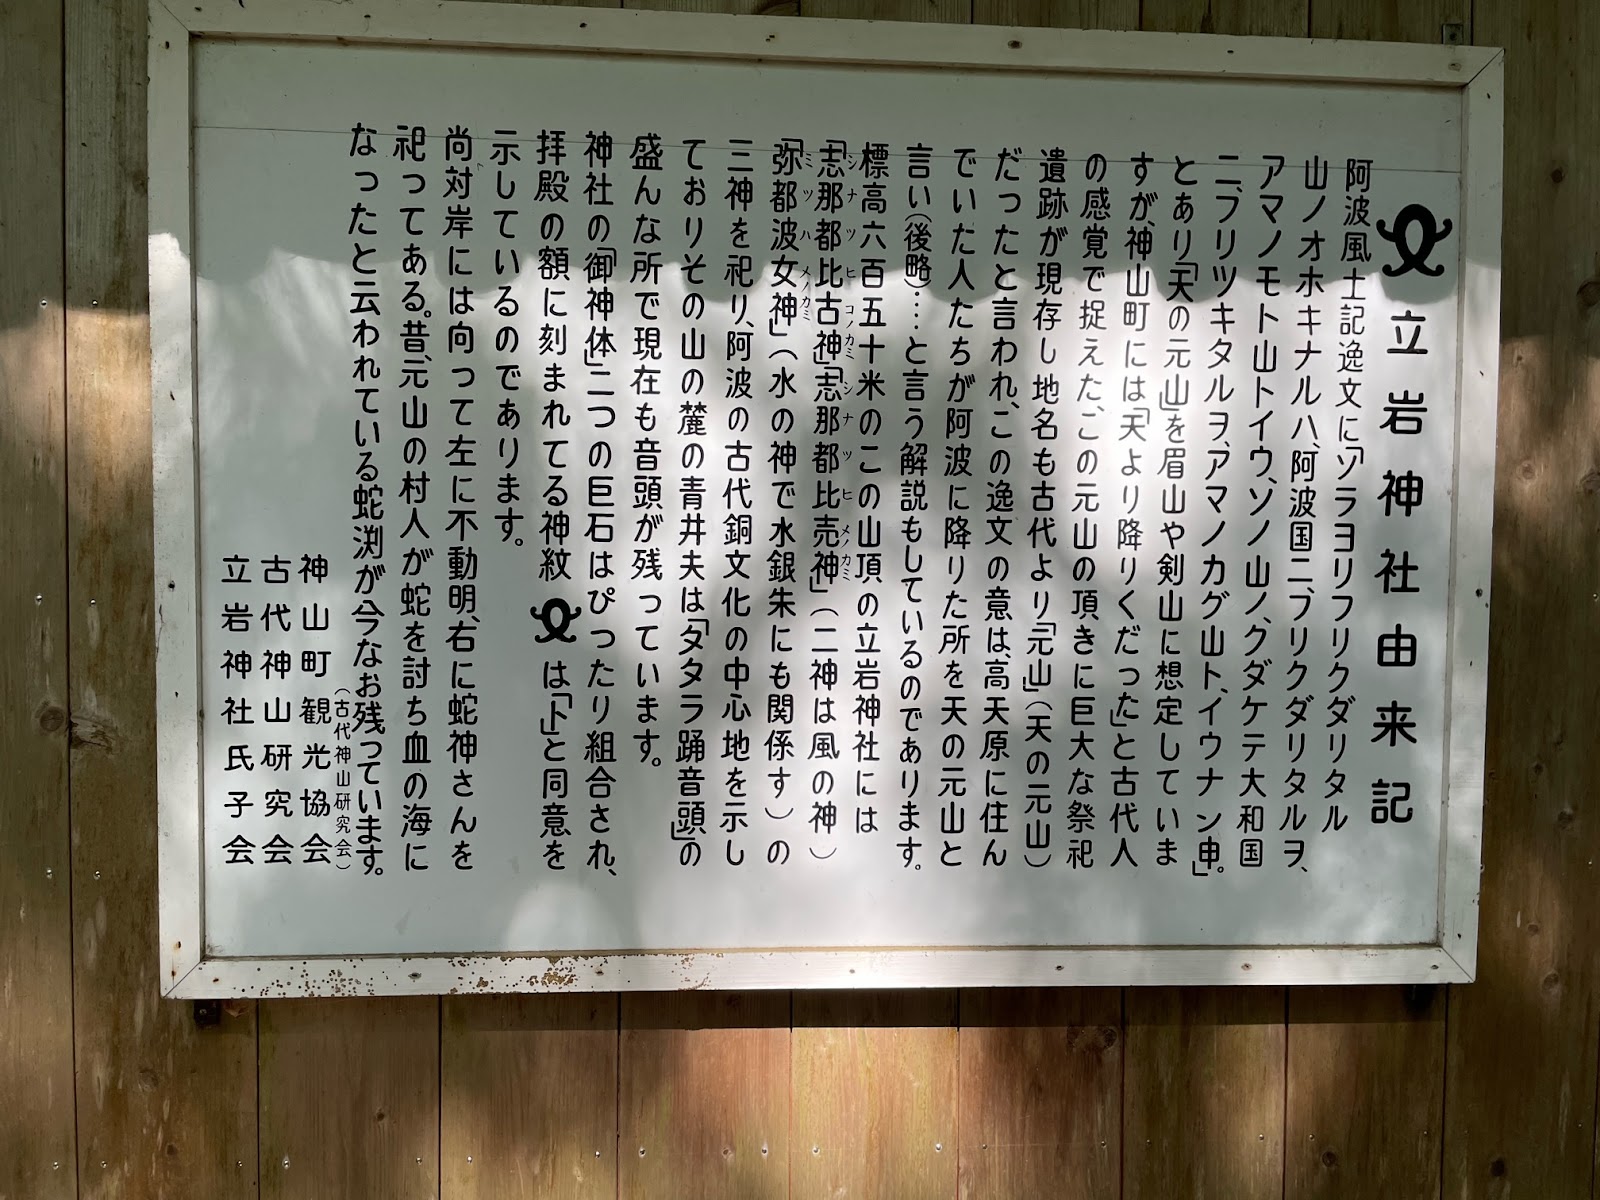 立岩神社由来記
阿波風土記逸文に「ソラヨリフリクダリタル
山ノオホキナルハ、阿波国ニ、フリクダリタルヲ、
アマノモト山トイウ、ソノ山ノ、クダケテ大和国
ニ、フリツキタルヲ、アマノカグ山ト、イウナン申」。
とあり「天の元山」を眉山や剣山に想定していま
すが、神山町には「天より降りくだった」と古代人
の感覚で捉えた、この元山の頂きに巨大な祭祀
遺跡が現存し地名も古代より「元山」（天の元山）
だったと言われ、この逸文の意は、高天原に住ん
でいた人たちが阿波に降りた所を天の元山と
言い（後略）‥‥と言う解説もしているのであります。
標高六百五十米のこの山頂の立岩神社には
「志那都比古神」「志那都比売神」（二神は風の神）
シナツヒコノカミ シナツヒメノカミ
「弥都波女神」（水の神で水銀朱にも関係す）の
ミツハメノカミ
三神を祀り、阿波の古代銅文化の中心地を示し
ておりその山の麓の青井夫は「タタラ踊音頭」の
盛んな所で現在も音頭が残っています。
神社の「御神体」二つの巨石はぴったり組合され、
拝殿の額に刻まれてる神紋は「卜」と同意を
示しているのであります。
尚対岸には向って左に不動明、右に蛇神さんを
祀ってある。昔、元山の村人が蛇を討ち血の海に
なったと云われている蛇渕が今なお残っています。
（古代神山研究会）
神山町観光協会
古代神山研究会
立岩神社氏子会